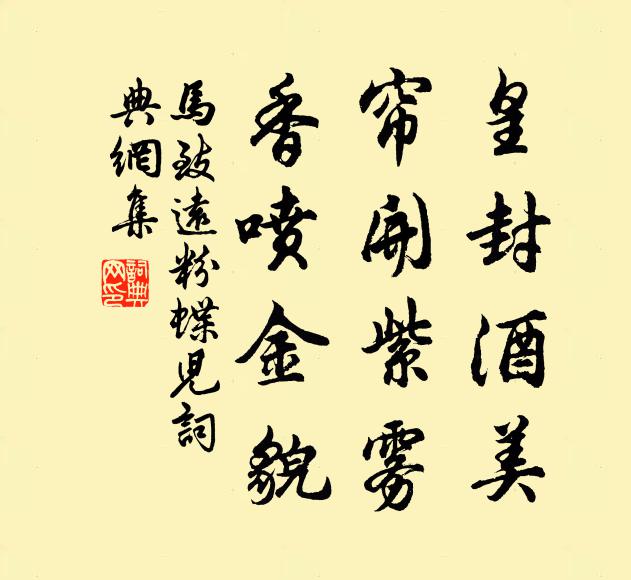 皇封酒美
帘開紫雾
香喷金貌
馬致遠粉蝶兒詞
典網集
詞典
网印